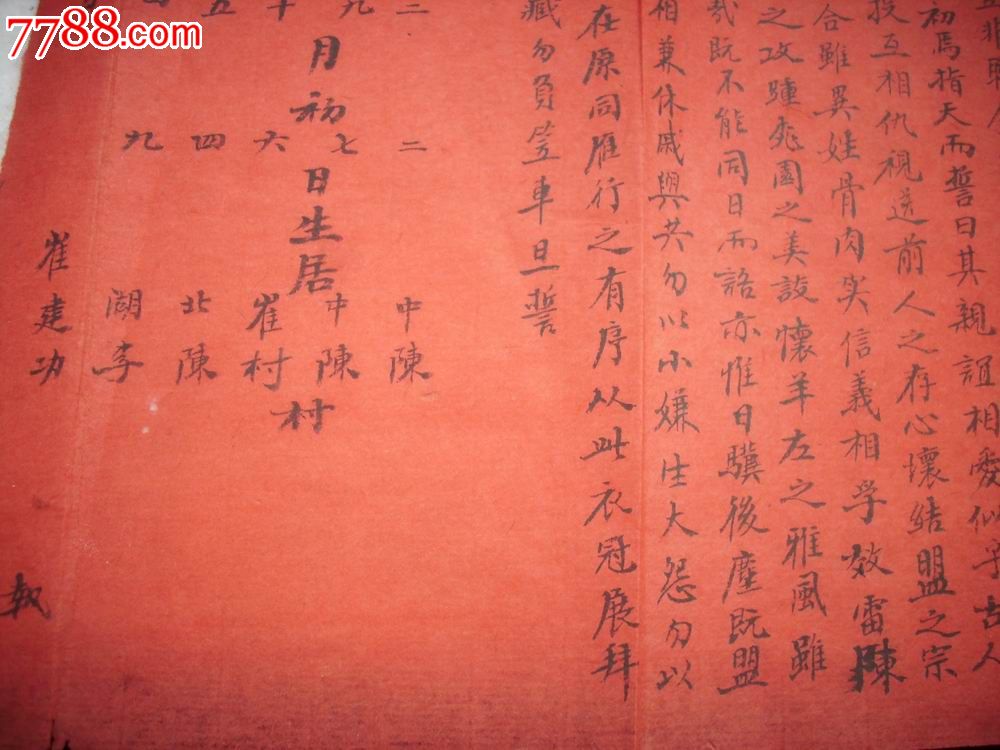 7788.com
收藏热线
非
初焉指天而誓曰其親誼相愛似乎古人
投互相仇視送前人之存心壞結盟之宗
合雖異姓骨肉实信義相学效雷陳
之攻踵桃園之美設懷羊左之雅風雖
既不能同日而語亦惟日驥後塵既盟
相兼休戚與共勿以小嫌生大怨勿以
在原同雁行之有序从此衣冠展拜
臧勿負笠車旦誓
二 中陳
九 七 中陳
月初 日生居 村
十 六 崔村
五 四 北陳
九 湖李
崔建功